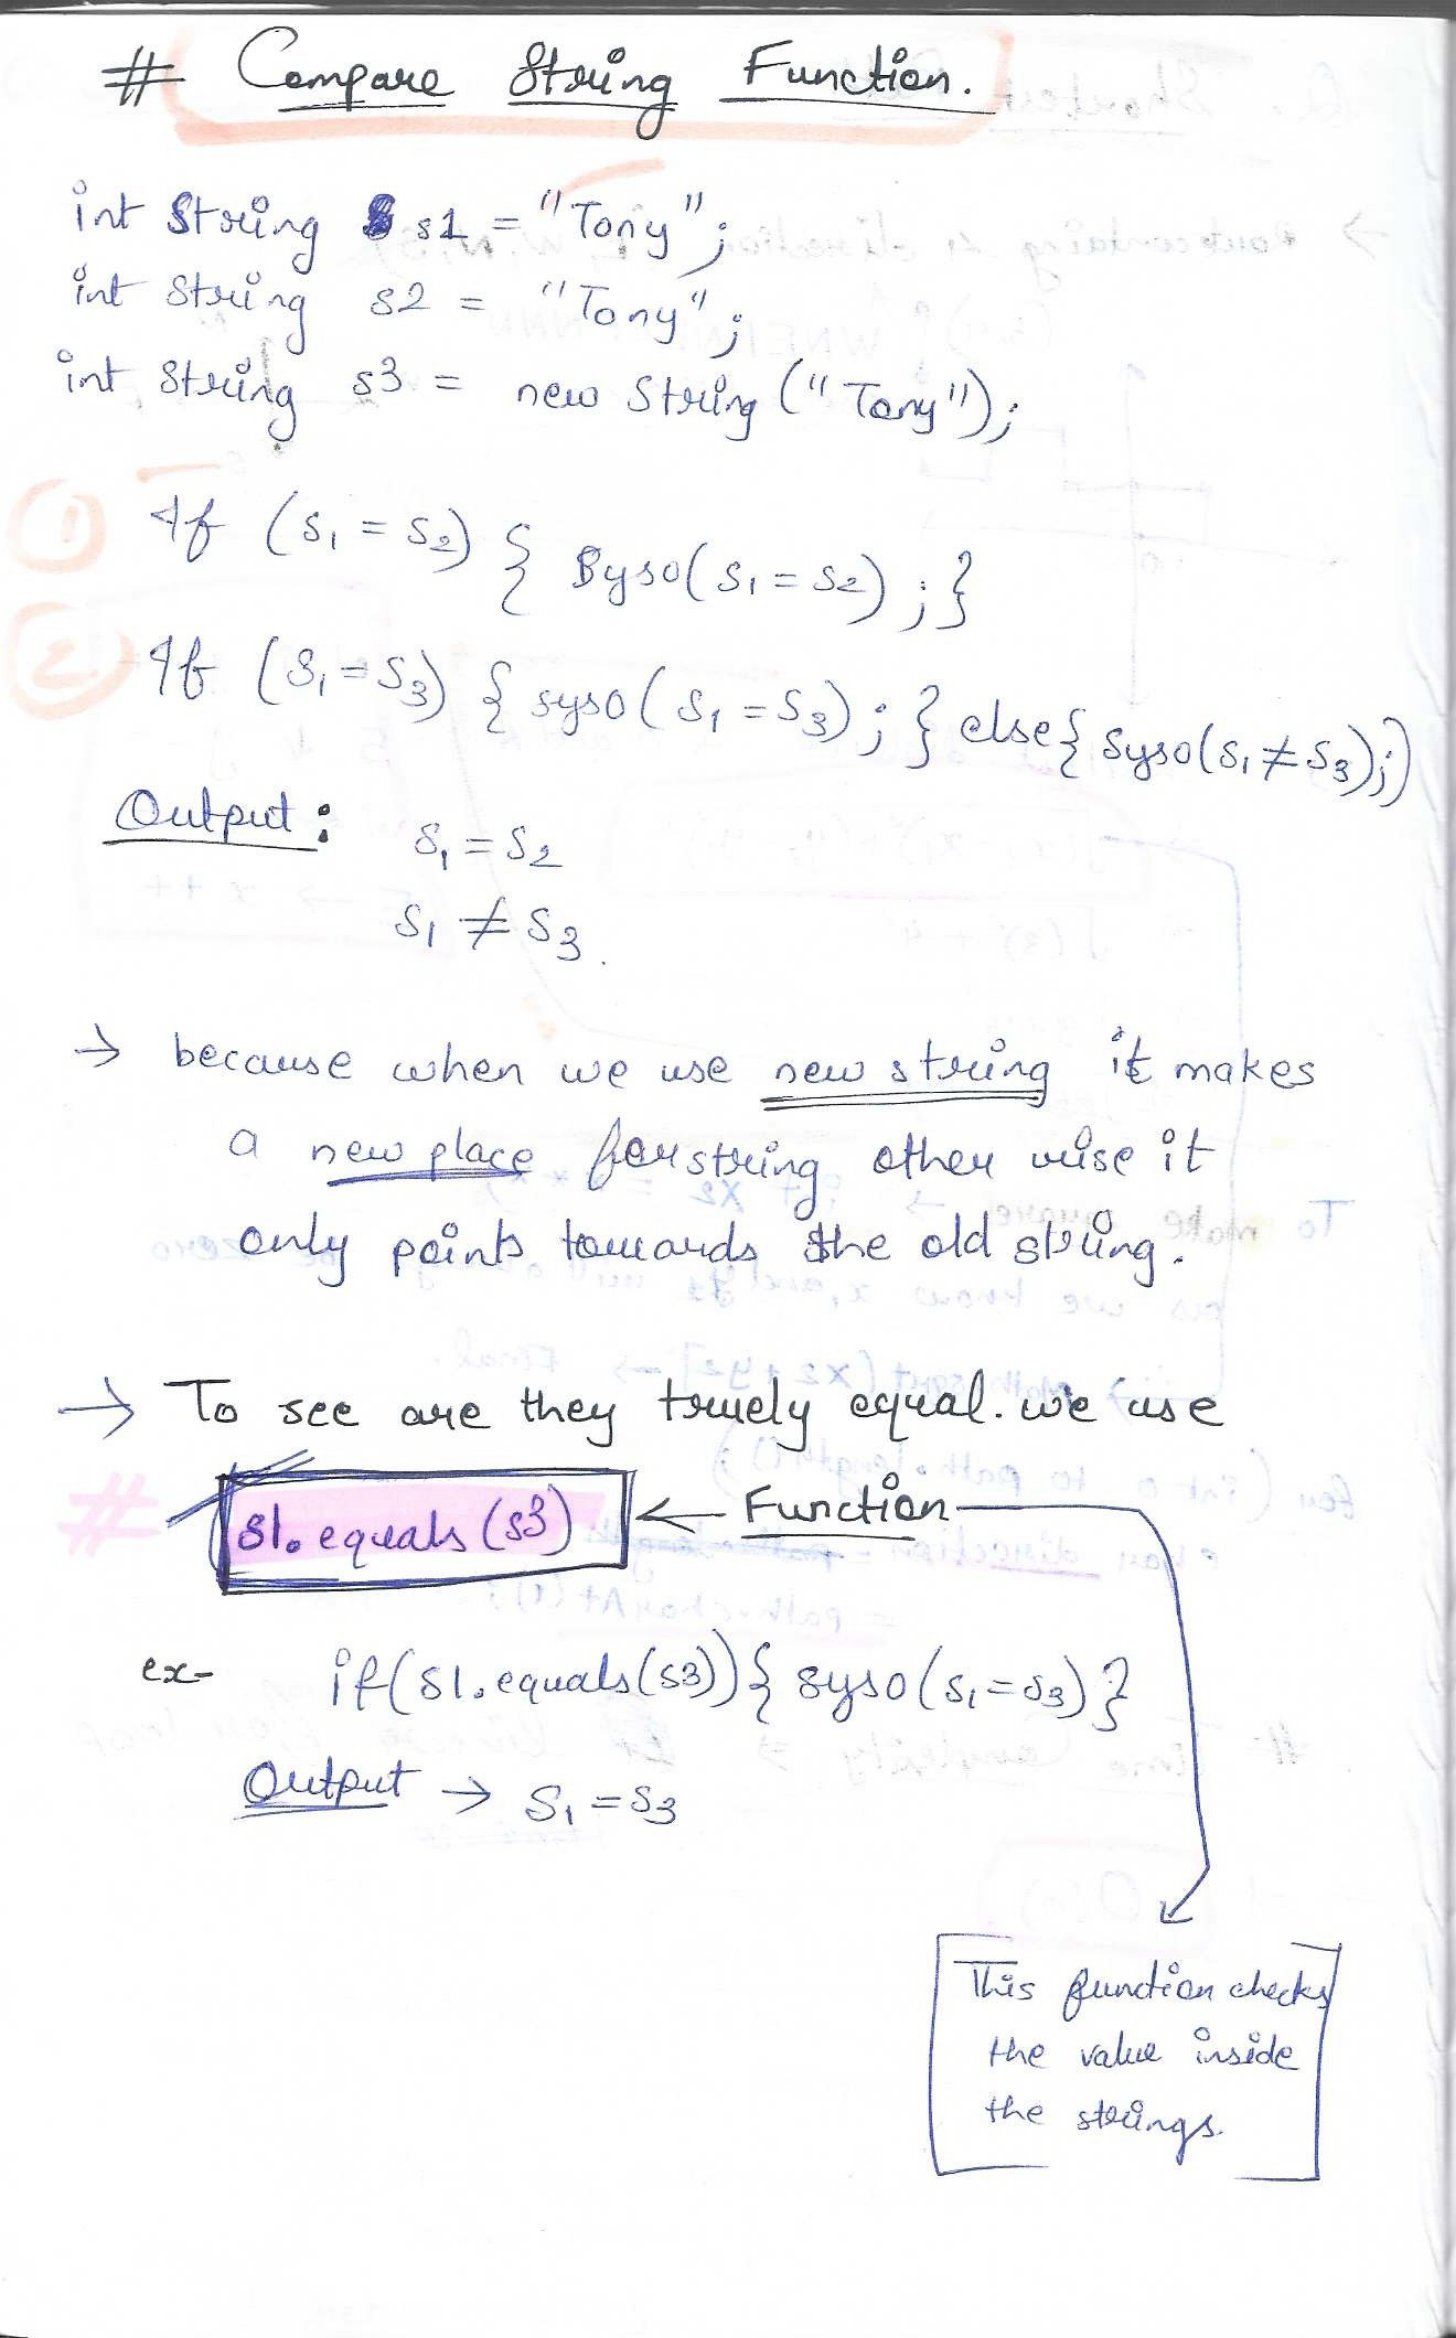 # Compare String Function.
int String s1 = "Tony";
int String s2 = "Tony";
int String s3 = new String ("Tony");
1 If (S1 = S2) { Syso(S1 = S2) ; }
2 If (S1 = S3) { syso ( S1 = S3) ; } else { Syso(S1 ≠ S3);}
Output :
S1 = S2
S1 ≠ S3.
→ because when we use new string it makes
a new place for string other wise it
only points towards the old string.
→ To see are they truely equal. we use
# S1.equals (s3) ← Function
ex- if(S1.equals(s3)) { syso(S1 = S3) }
Output → S1 = S3
This function checks
the value inside
the strings.